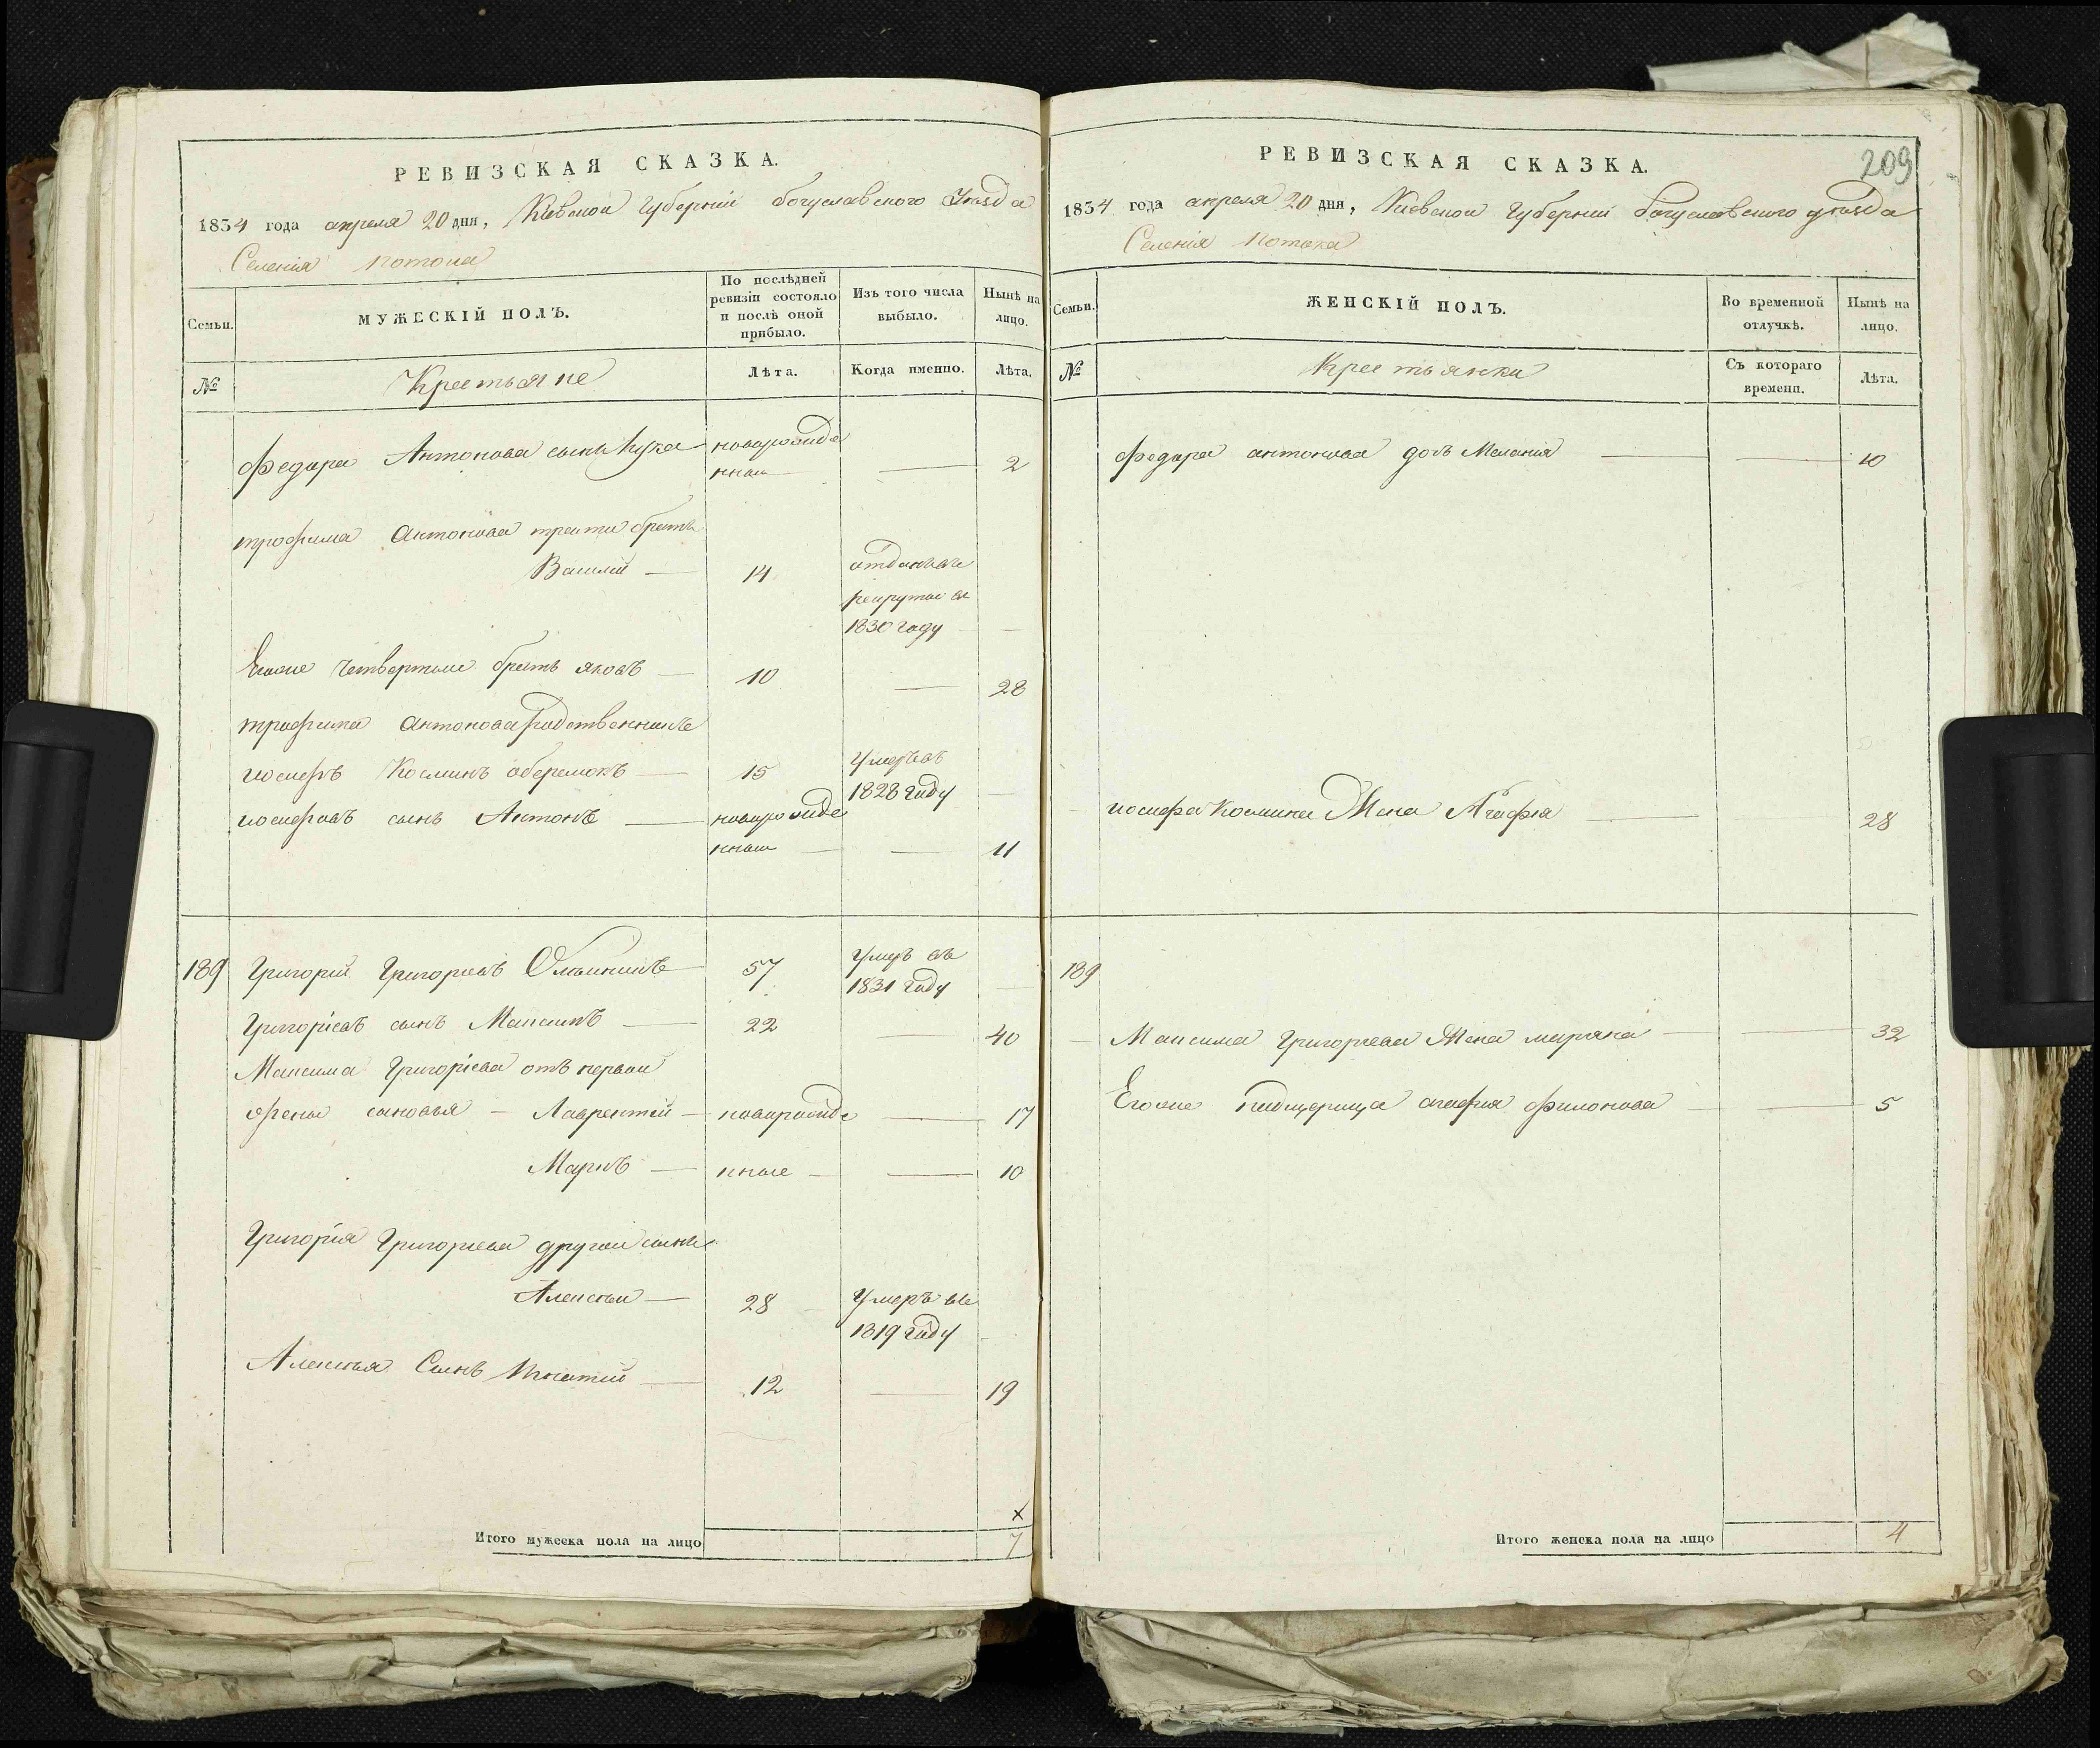 РЕВИЗСКАЯ СКАЗКА.
1834 года апреля 20 дня, Киевской Губерніи богуславского уезда
Селенія потока
Семьи.
МУЖЕСКІЙ ПОЛЪ.
По послѣдней ревизіи состояло и послѣ оной прибыло.
Изъ того числа выбыло.
Нынѣ на лицо.
№
Крестьяне
Лѣта.
Когда именно.
Лѣта.
Федора Антонова сынъ Лука новорожде
нной 2
трофима Антонова трети братъ
Василій 14 отданъ въ
рекруты въ
1830 году
Егоже четвертый братъ яковъ 10 28
трофима Антонова родственникъ
иосифъ Косминъ оберемокъ 15 умеръ въ
1828 году
иосифовъ сынъ Антонъ новорожде
нной 11
189 Григорий Григориевъ 57 умеръ въ
1831 году
Григоріевъ сынъ Максимъ 22 40
Максима Григоріева отъ первой
жены сыновья - Лаврентей новорожде 17
Маркъ нные 10
Григорія Григориева другой сынъ
Алексей 28 Умеръ въ
1819 году
Алексея Сынъ Игнатий 12 19
Итого мужеска пола на лицо
х
7
РЕВИЗСКАЯ СКАЗКА.
209
1834 года апреля 20 дня, Киевской Губернии богуславского уезда
Селенія потока
Семьи.
ЖЕНСКІЙ ПОЛЪ.
Во временной отлучкѣ.
Нынѣ на лицо.
№
Крестьянки
Съ котораго времени.
Лѣта.
Федора антонова дочь Меланія 10
иосифа Космина Жена Агафія 28
189
Максима Григориева Жена 32
Егоже падщерица агафия филонова 5
Итого женска пола на лицо 4